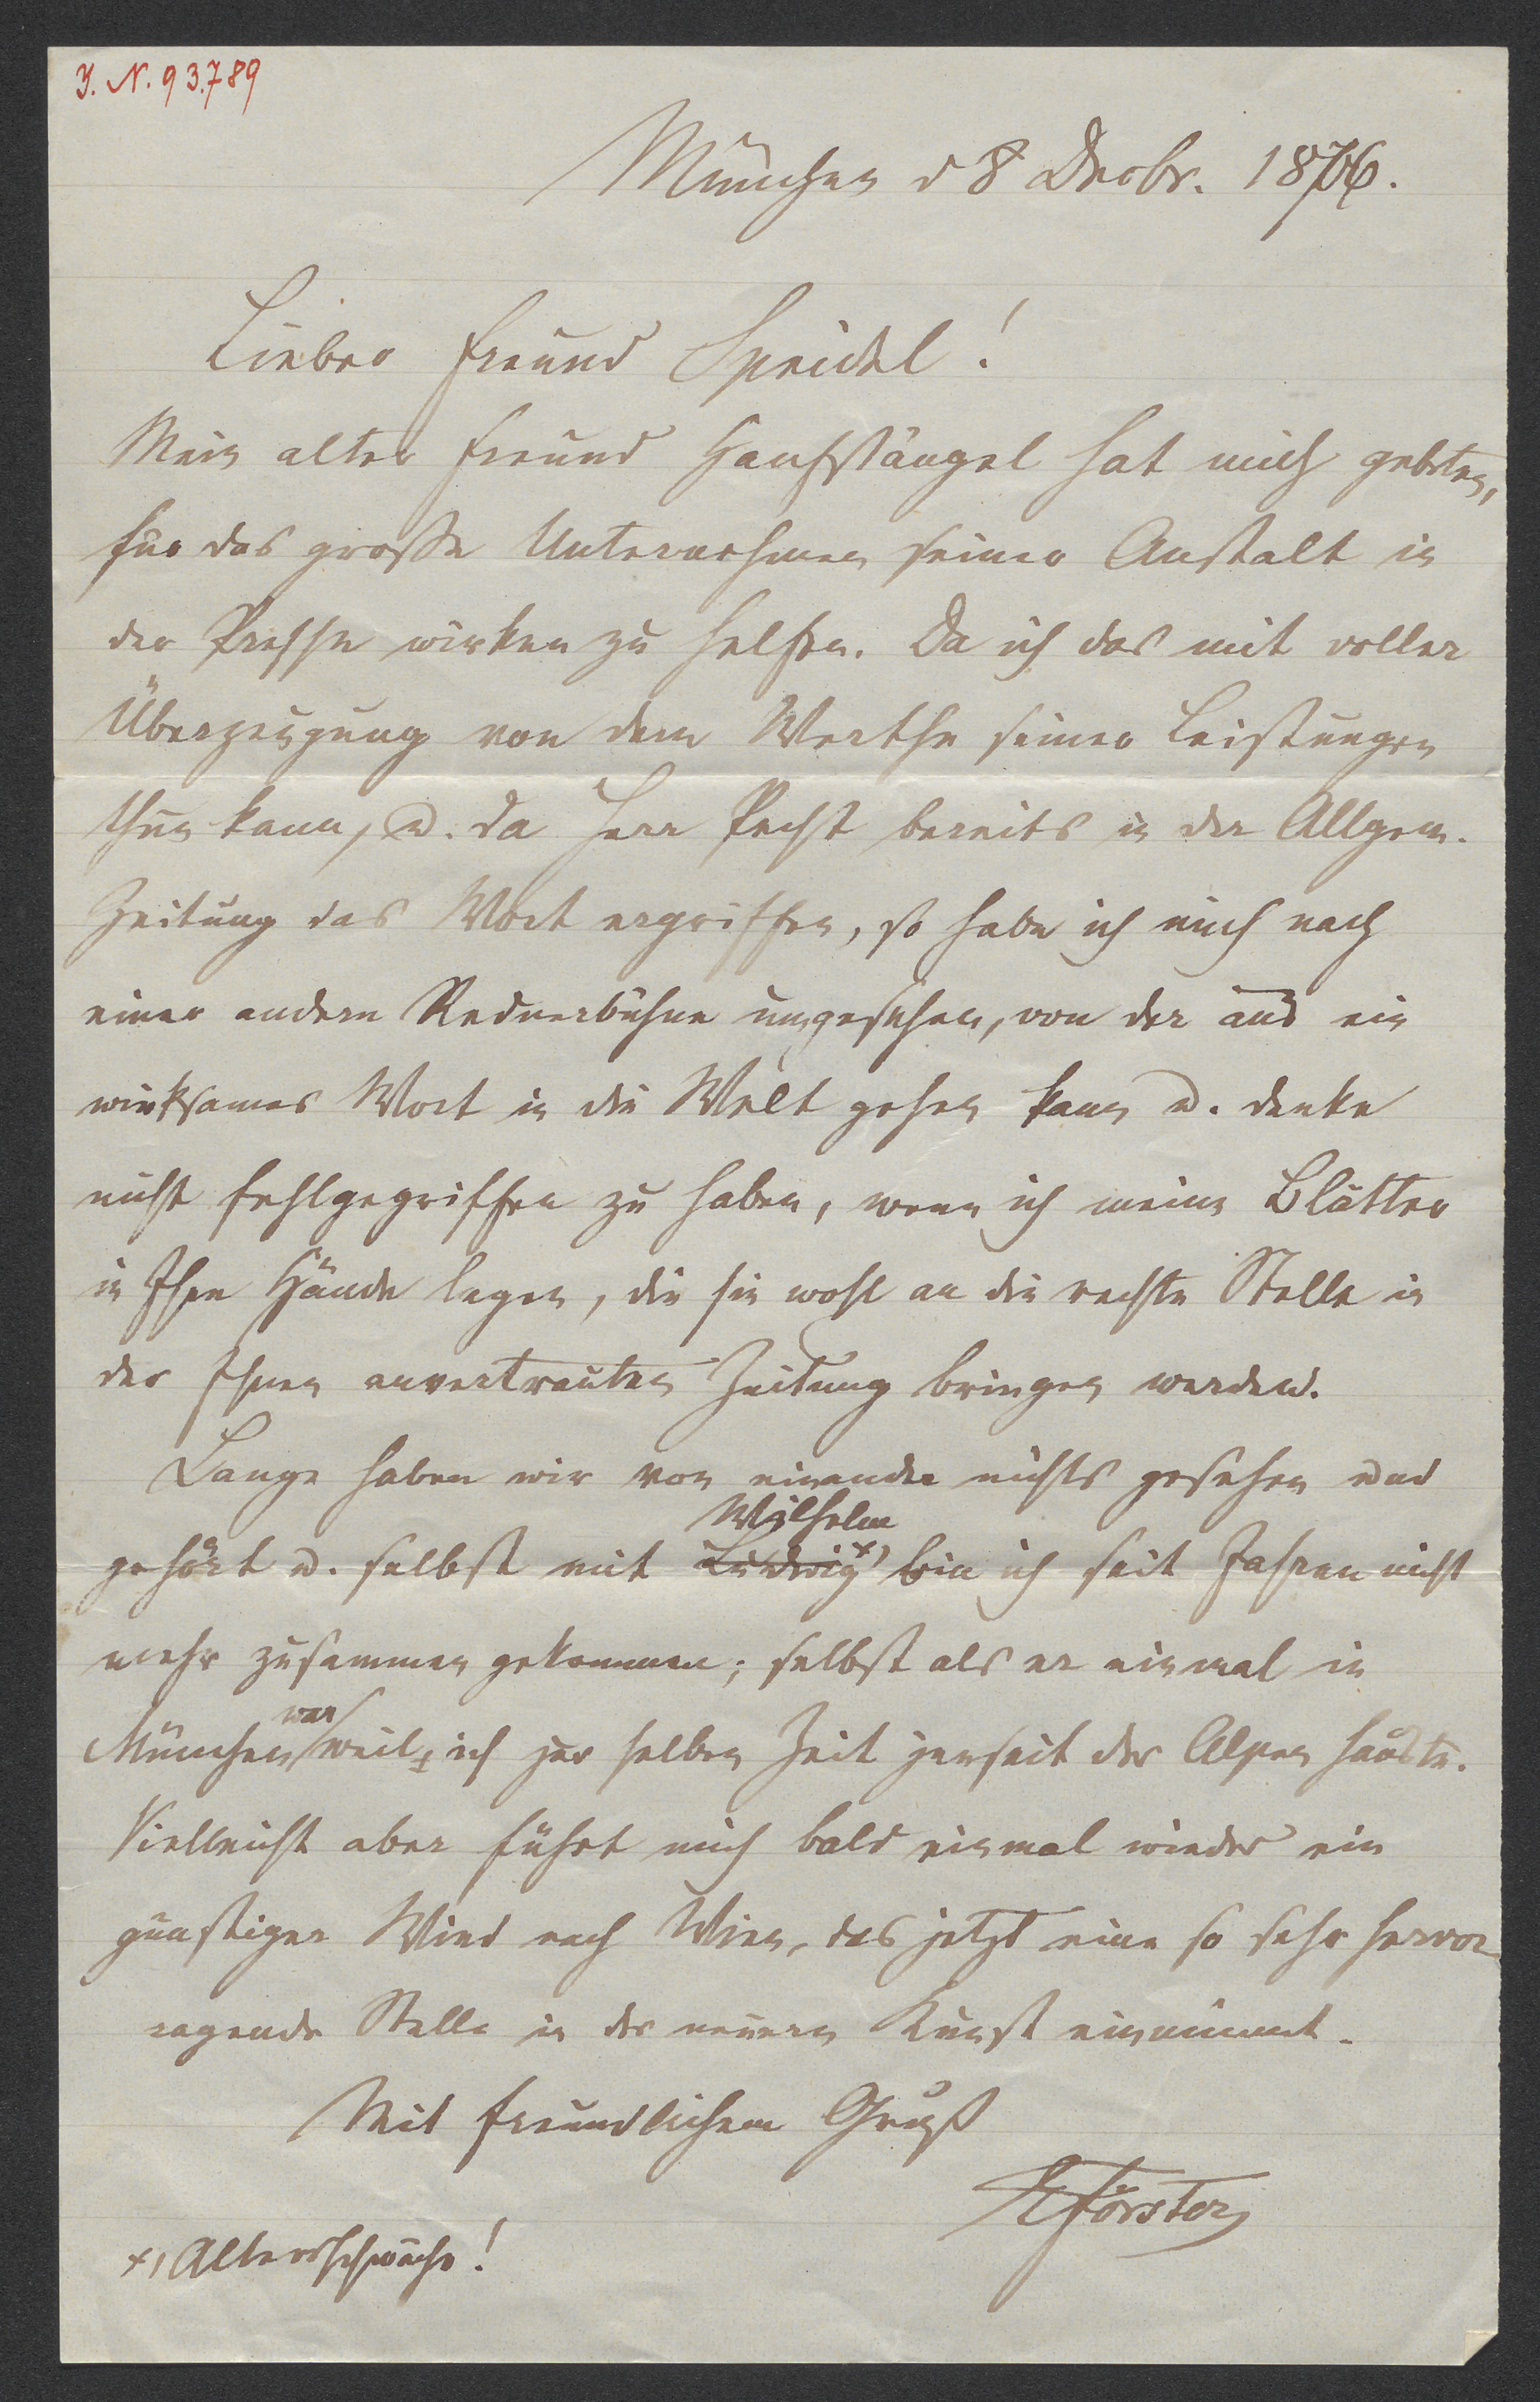 J. N. 93.789
München d 8 Decbr. 1876.
Lieber Freund Speidel!
Mein alter Freund Hanfstängel hat mich gebeten,
für das große Unternehmen seiner Anstalt in
der Presse wirken zu helfen. Da ich das mit voller
Überzeugung von dem Werthe seiner Leistungen
thun kann, u. da Herr Pecht bereits in der Allgem.
Zeitung das Wort ergriffen, so habe ich mich nach
einer andern Rednerbühne umgesehen, von der aus ein
wirksames Wort in die Welt gehen kann u. denke
nicht fehlgegriffen zu haben, wenn ich meine Blätter
in Ihre Hände lege, die sie wohl an die rechte Stelle in
der Ihnen anvertrauten Zeitung bringen werden.
Lange haben wir von einander nichts gesehen und
Wilhelm
gehört u. selbst mit Ludwig x) bin ich seit Jahren nicht
mehr zusammen gekommen; selbst als er einmal in
war
München weil ich zur selben Zeit jenseit der Alpen hauste.
Vielleicht aber führt mich bald einmal wieder ein
günstiger Wind nach Wien, das jetzt eine so sehr hervor-
ragende Stelle in der neuern Kunst einnimmt.
Mit freundlichem Gruß
EFörster
x) Altersschwäche!